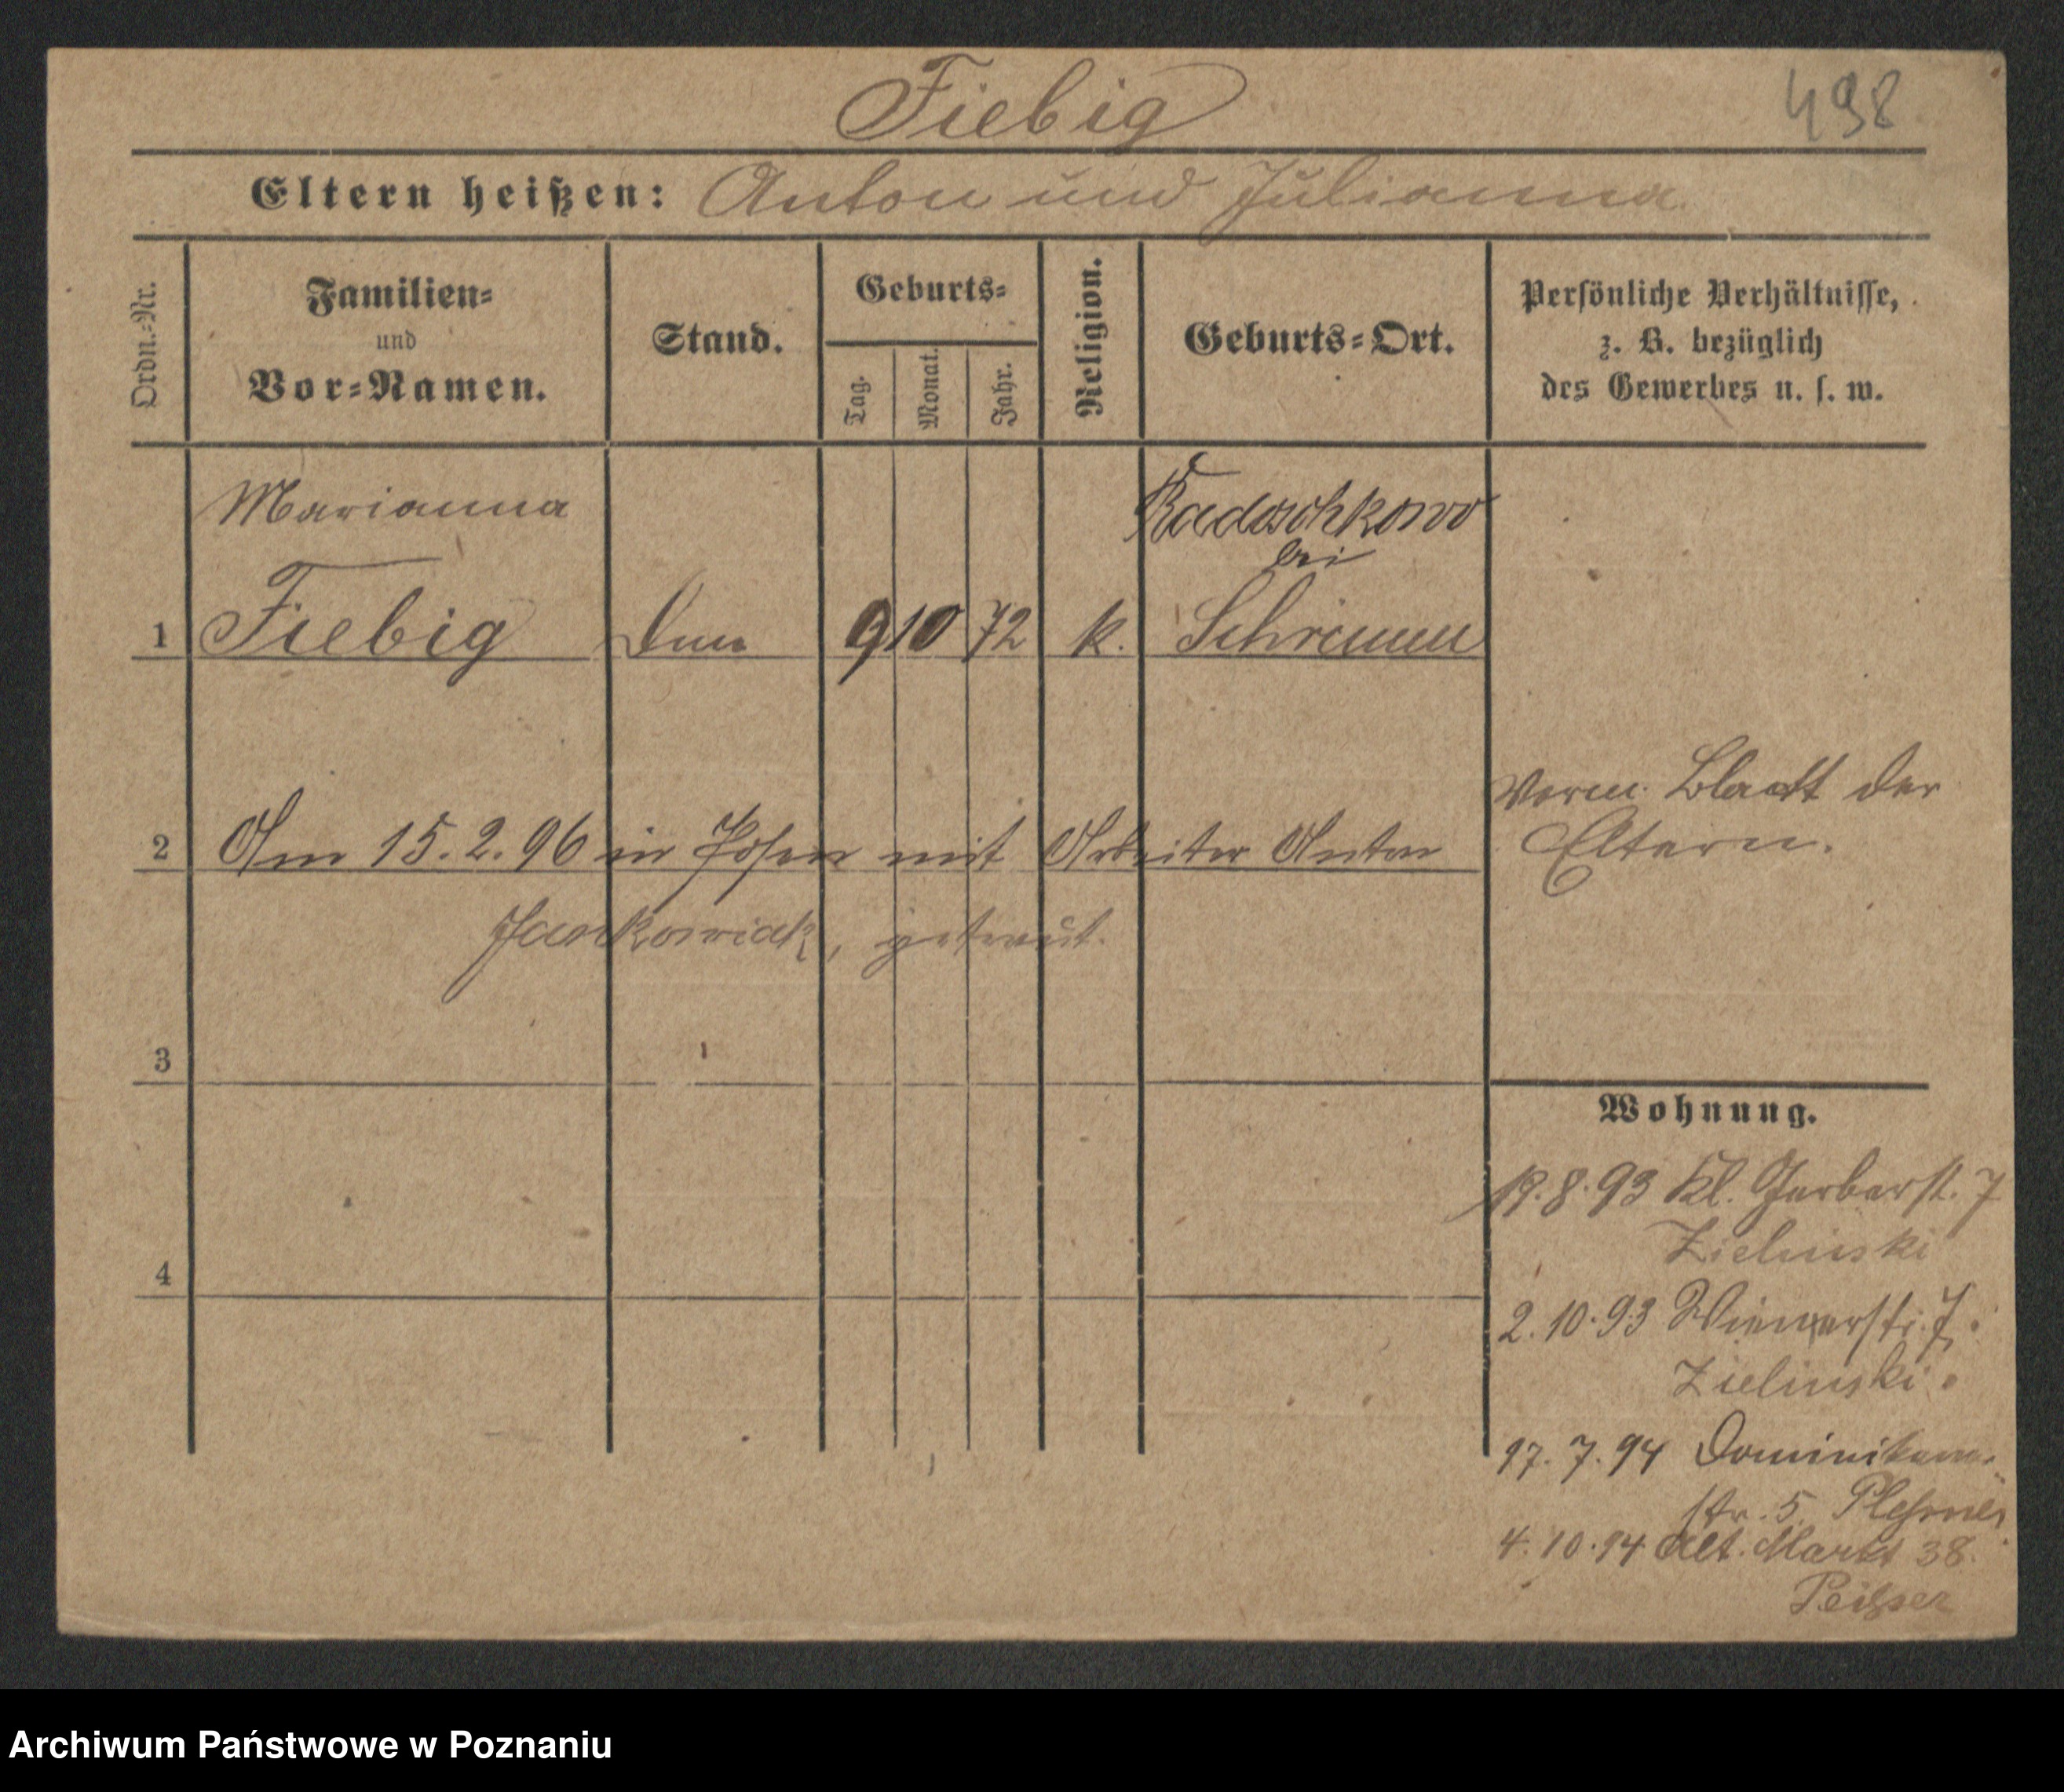 Fiebig
498
Eltern heißen: Anton und Julianna
Ordn.-Nr.
Familien-
und
Vor-Namen.
Stand.
Geburts-
Tag.
Monat.
Jahr.
Religion.
Geburts-Ort.
Persönliche Verhältnisse,
z. B. bezüglich
des Gewerbes u. s. w.
Marianna
Radoschkowo
bei
1 Fiebig 9 10 72 k. Schrimm
Verm. Blatt der
Eltern.
2 Am 15.2.96 in Posen mit Arbeiter Anton
Jankowiak, getraut.
3
4
Wohnung.
19.8.93 Kl. Gerberst. 7
Zielinski
2.10.93 Wienerstr. 7.
Zielinski.
17.7.94 Dominikan.
str. 5.
4.10.94 Alt. Markt 38.
Peisser
Archiwum Państwowe w Poznaniu